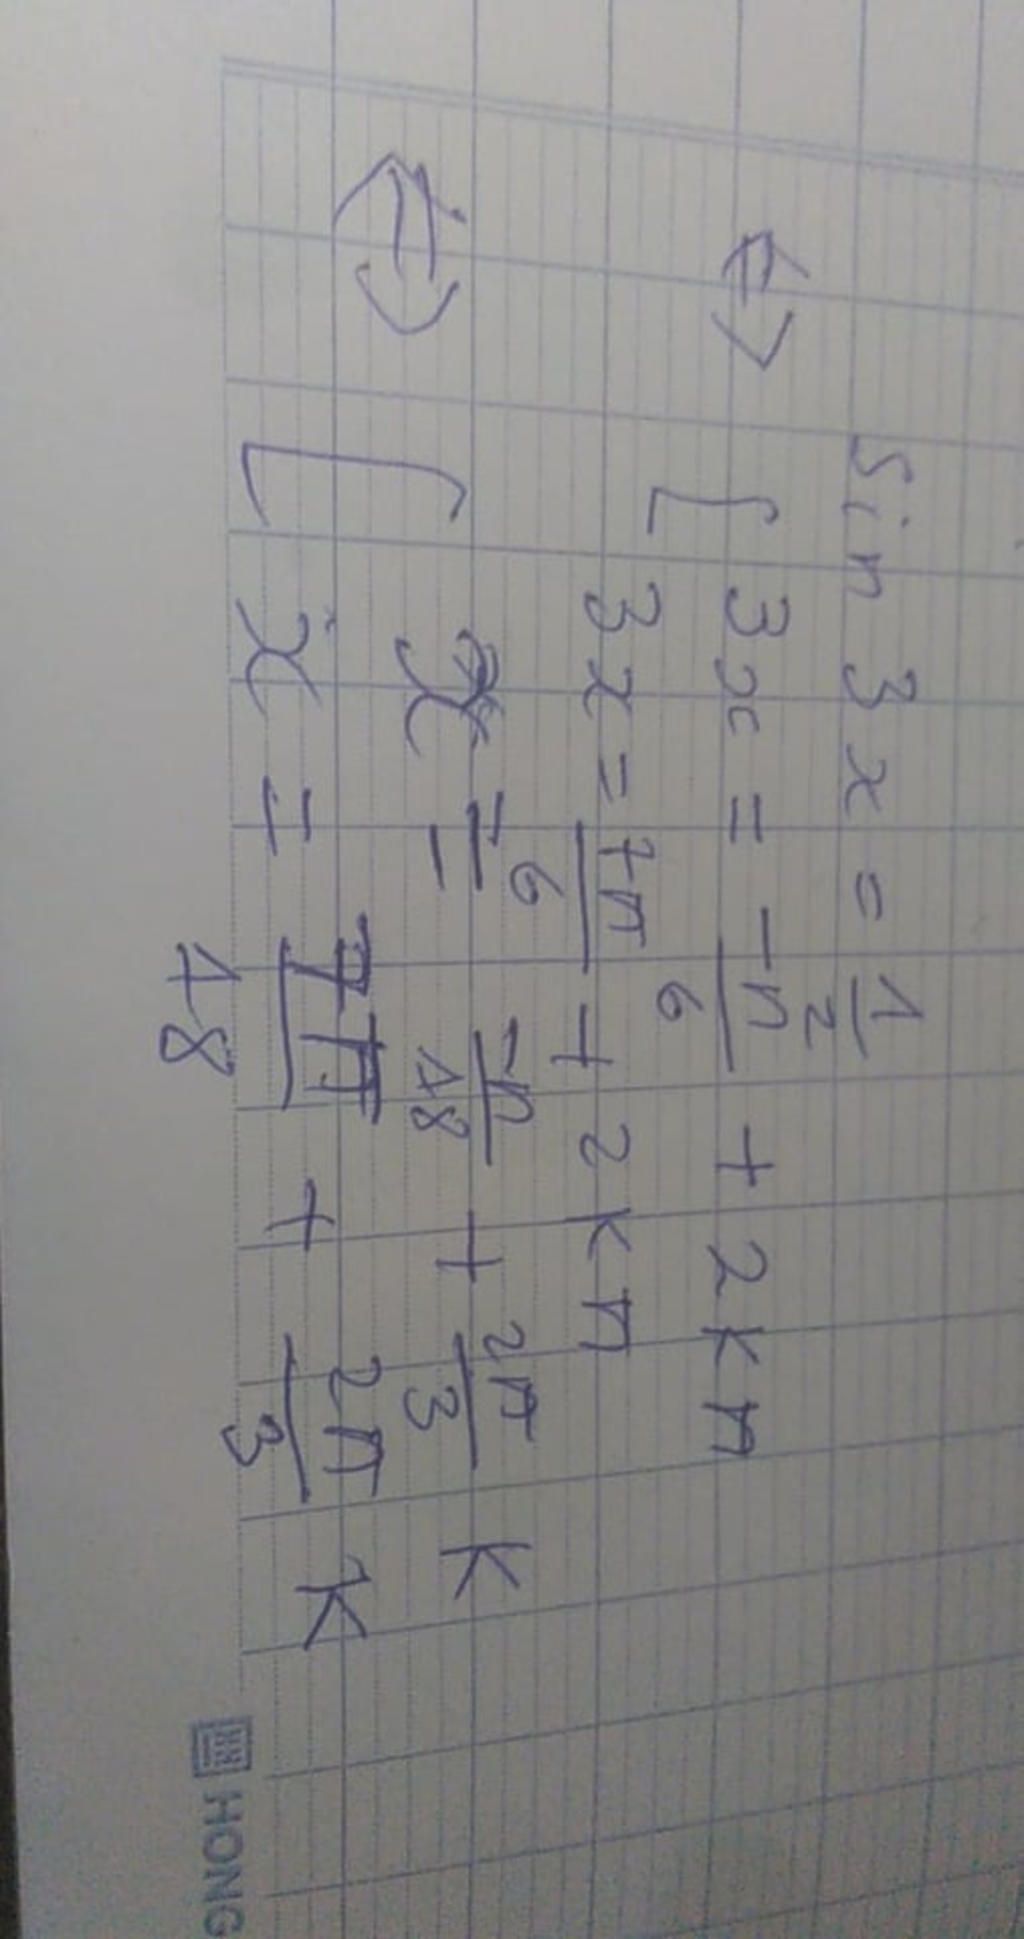 Sin 3x = 1/2
⇔ [ 3x = -π/6 + 2kπ
3x = 7π/6 + 2kπ
⇔ [ x = -π/18 + 2π/3 k
x = 7π/18 + 2π/3 k
HONG